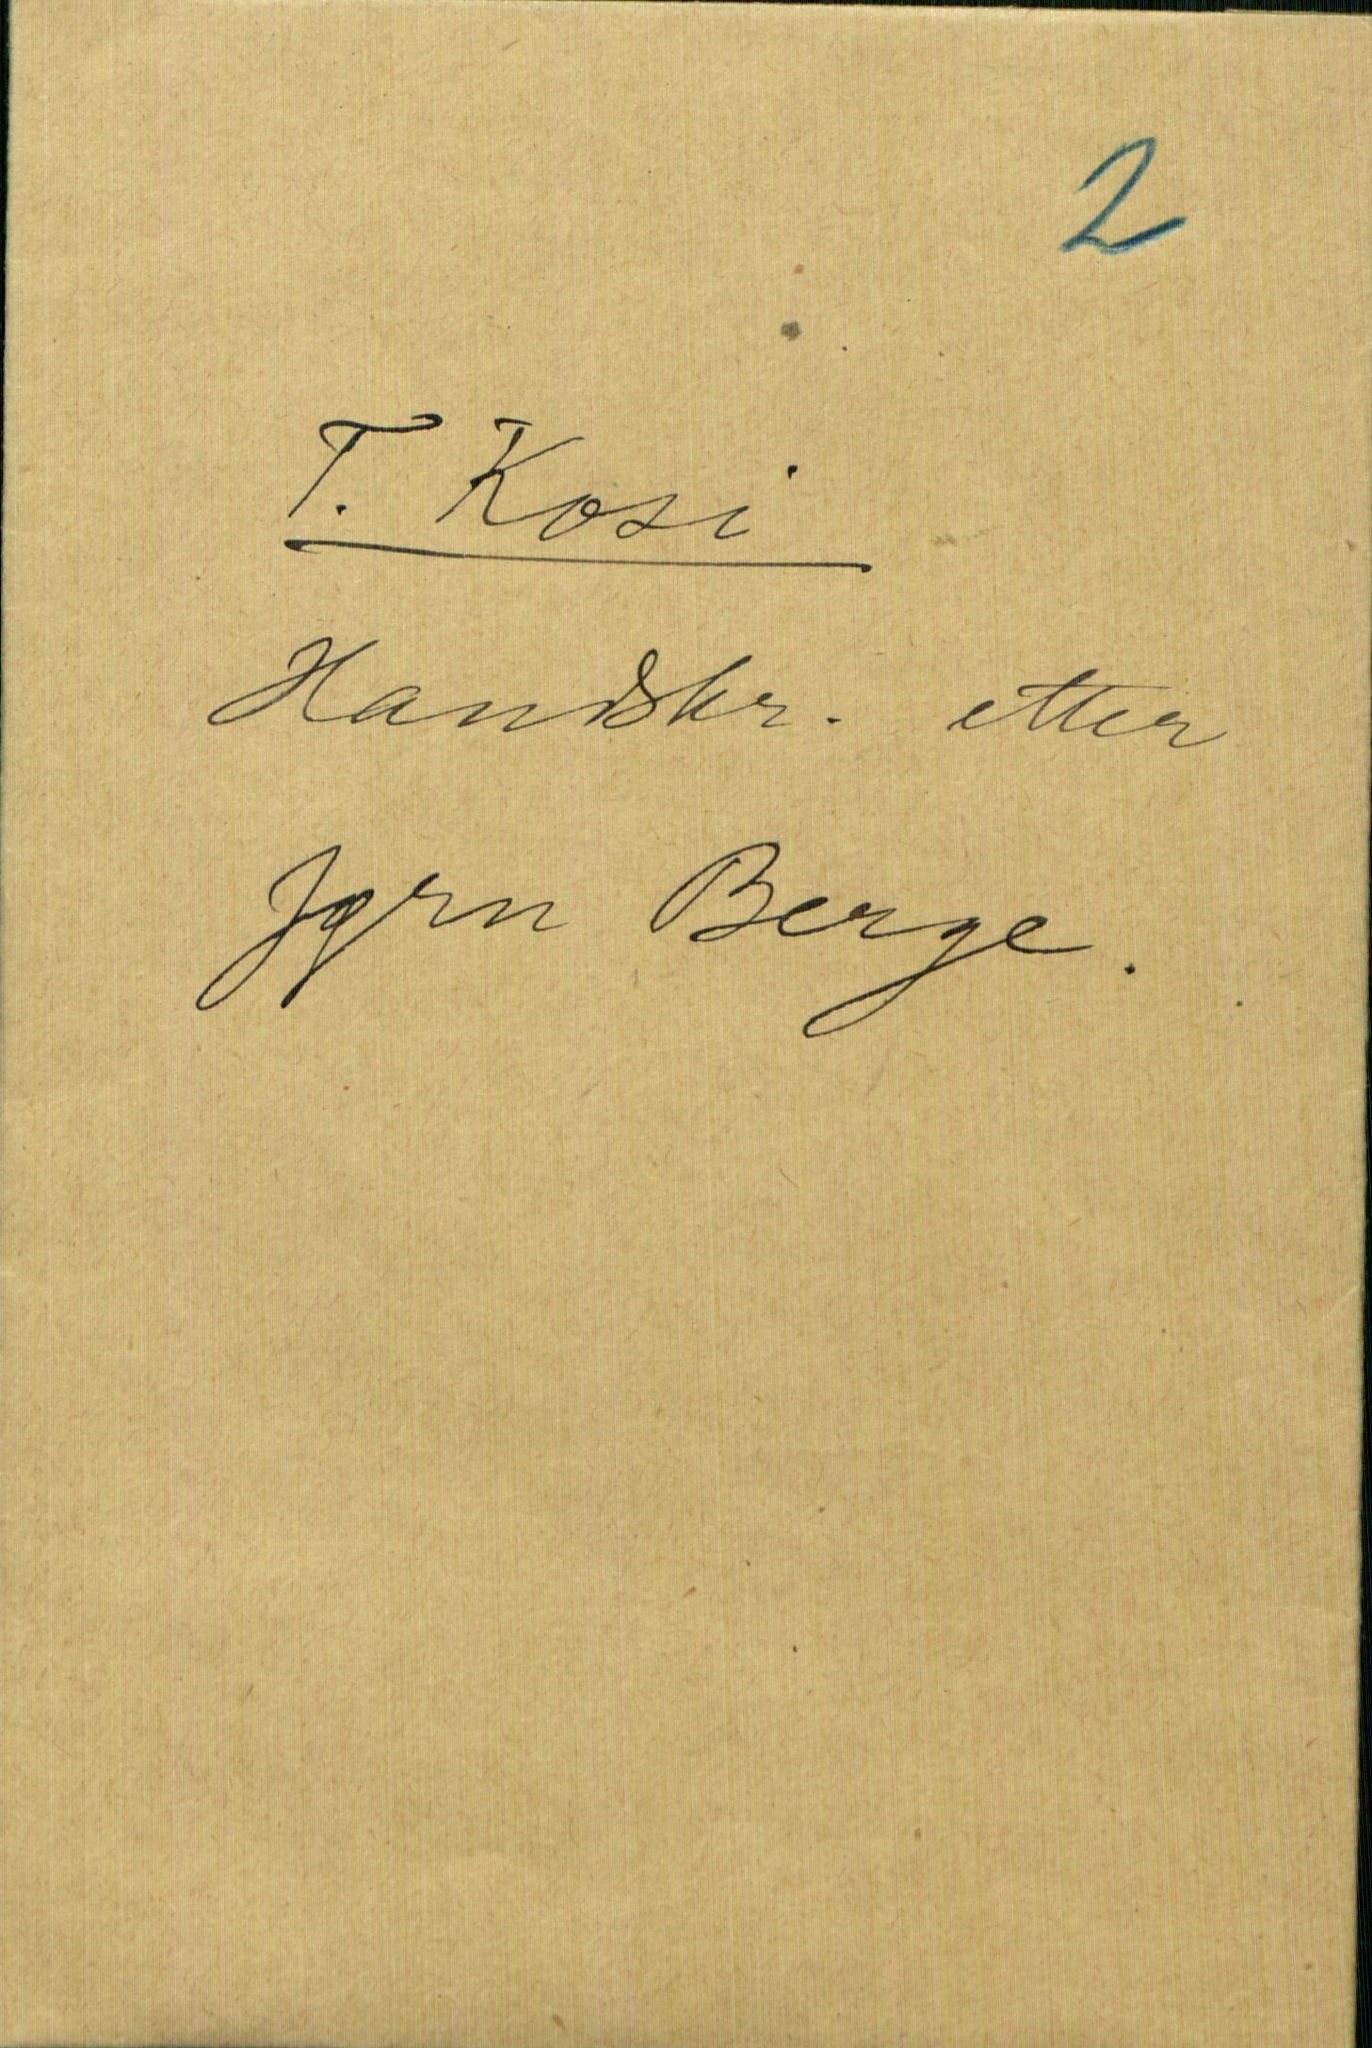 2
T. Kosi
Handskr. etter
Jørn Berge.